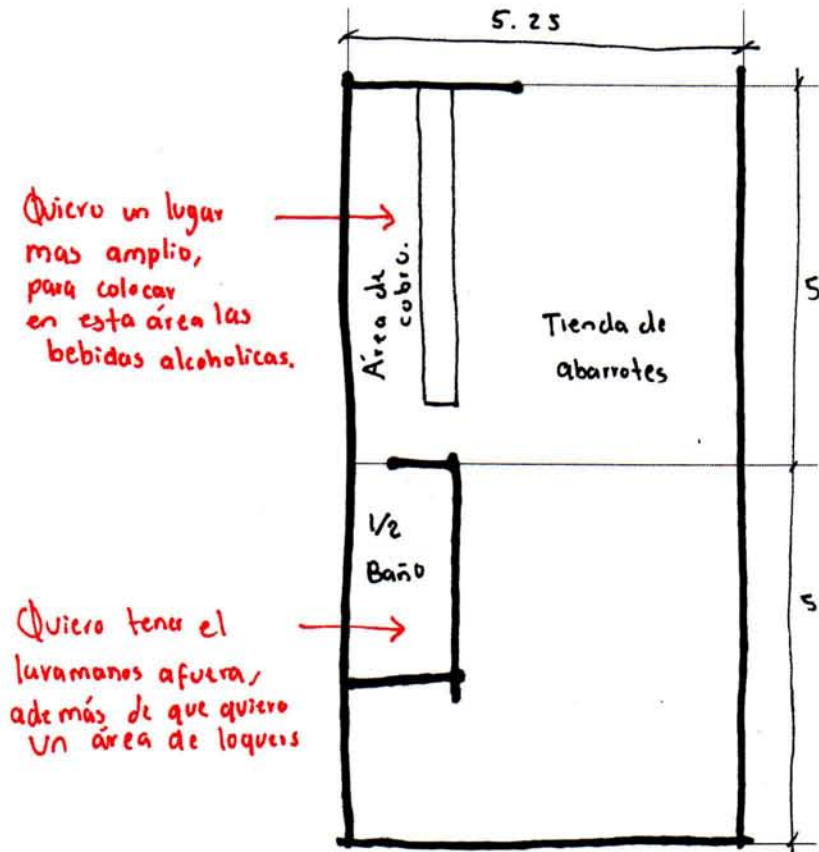 5.25
Quiero un lugar
mas amplio,
para colocar
en esta área las
bebidas alcoholicas.
Área de
cobro.
Tienda de
abarrotes
5
1/2
Baño
5
Quiero tener el
lavamanos afuera,
además de que quiero
un área de loquers